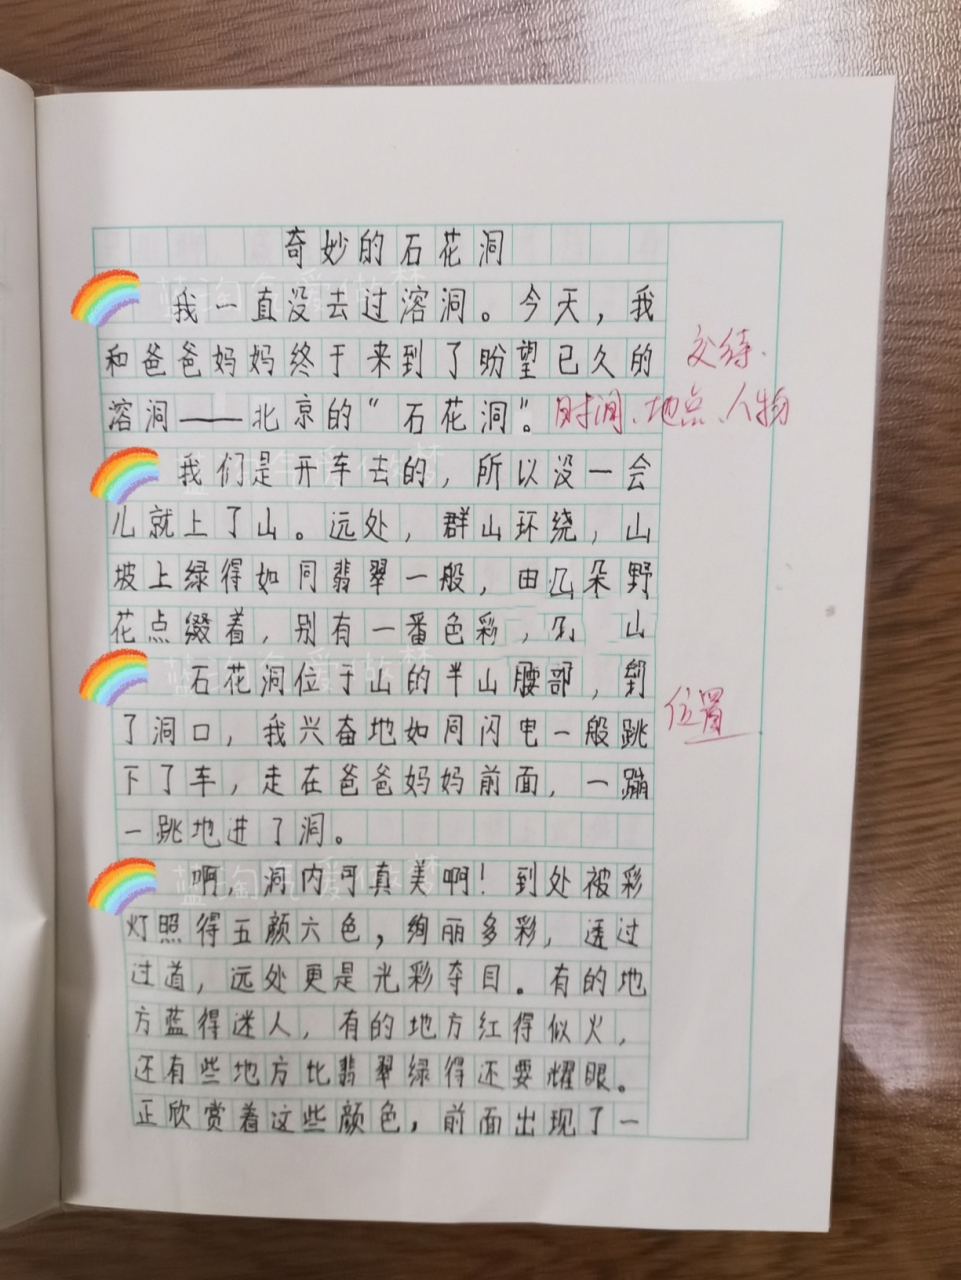 奇妙的石花洞
我一直没去过溶洞。今天，我
和爸爸妈妈终于来到了盼望已久的
交待、
溶洞——北京的“石花洞”。
时间、地点、人物
我们是开车去的，所以没一会
儿就上了山。远处，群山环绕，山
坡上绿得如同翡翠一般，由几朵野
花点缀着，别有一番色彩，山
石花洞位于山的半山腰部，到
位置
了洞口，我兴奋地如同闪电一般跳
下了车，走在爸爸妈妈前面，一蹦
一跳地进了洞。
啊，洞内可真美啊！到处被彩
灯照得五颜六色，绚丽多彩，透过
过道，远处更是光彩夺目。有的地
方蓝得迷人，有的地方红得似火，
还有些地方比翡翠绿得还要耀眼。
正欣赏着这些颜色，前面出现了一